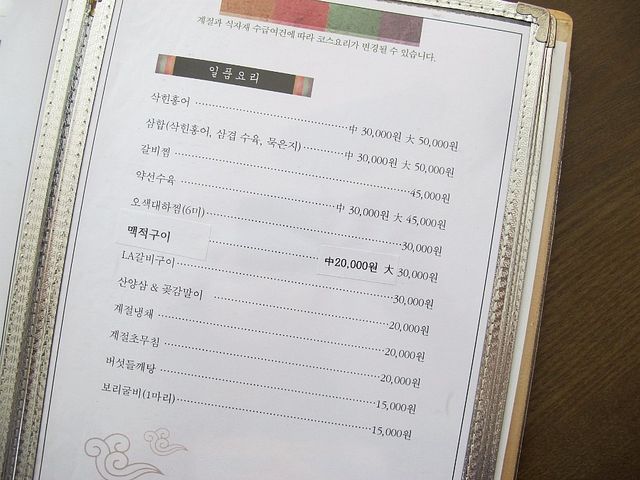 계절과 식자재 수급여건에 따라 코스요리가 변경될 수 있습니다.
일품요리
삭힌홍어 中 30,000원 大 50,000원
삼합(삭힌홍어, 삼겹 수육, 묵은지) 中 30,000원 大 50,000원
갈비찜 45,000원
약선수육 中 30,000원 大 45,000원
오색대하찜(6미) 30,000원
맥적구이 中20,000원 大 30,000원
LA갈비구이 30,000원
산양삼 & 곶감말이 20,000원
계절냉채 20,000원
계절초무침 20,000원
버섯들깨탕 15,000원
보리굴비(1마리) 15,000원